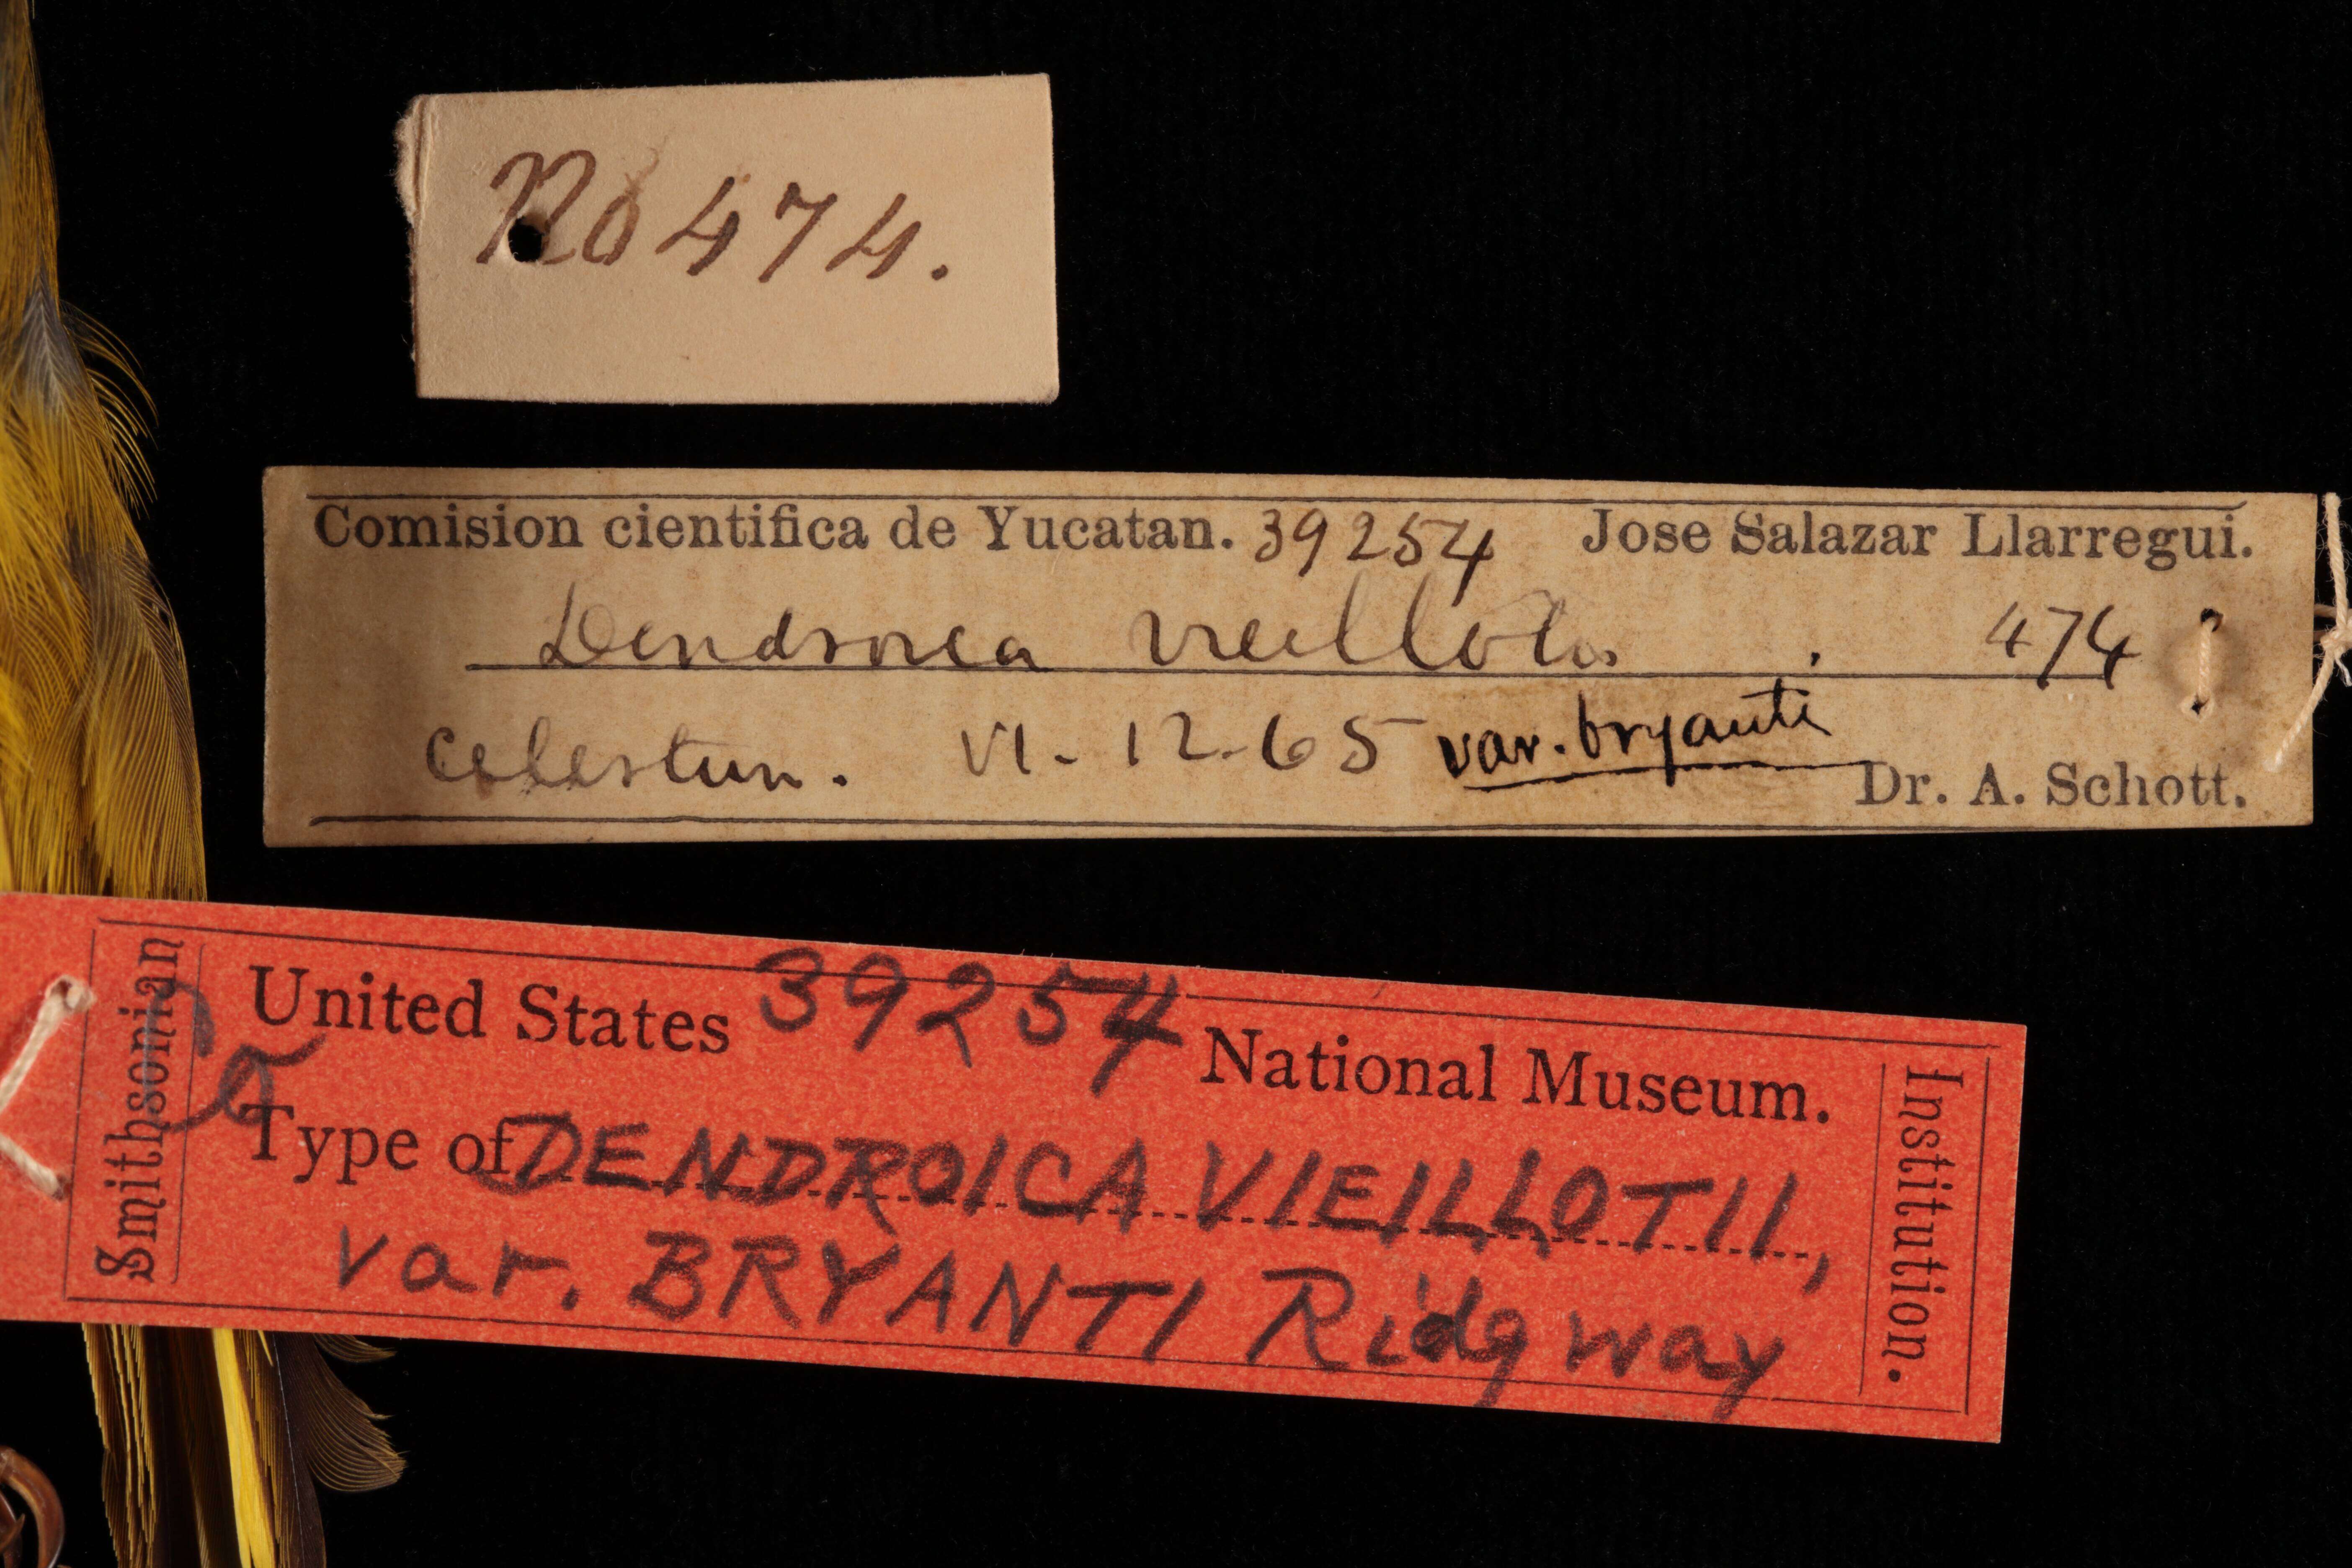 No 474.
Comision cientifica de Yucatan. 39254 Jose Salazar Llarregui.
Dendroica vieilloti. 474
Celestun. VI-12-65 var. bryanti
Dr. A. Schott.
Smithsonian
United States 39254 National Museum.
Type of DENDROICA VIEILLOTII,
var. BRYANTI Ridgway
Institution.